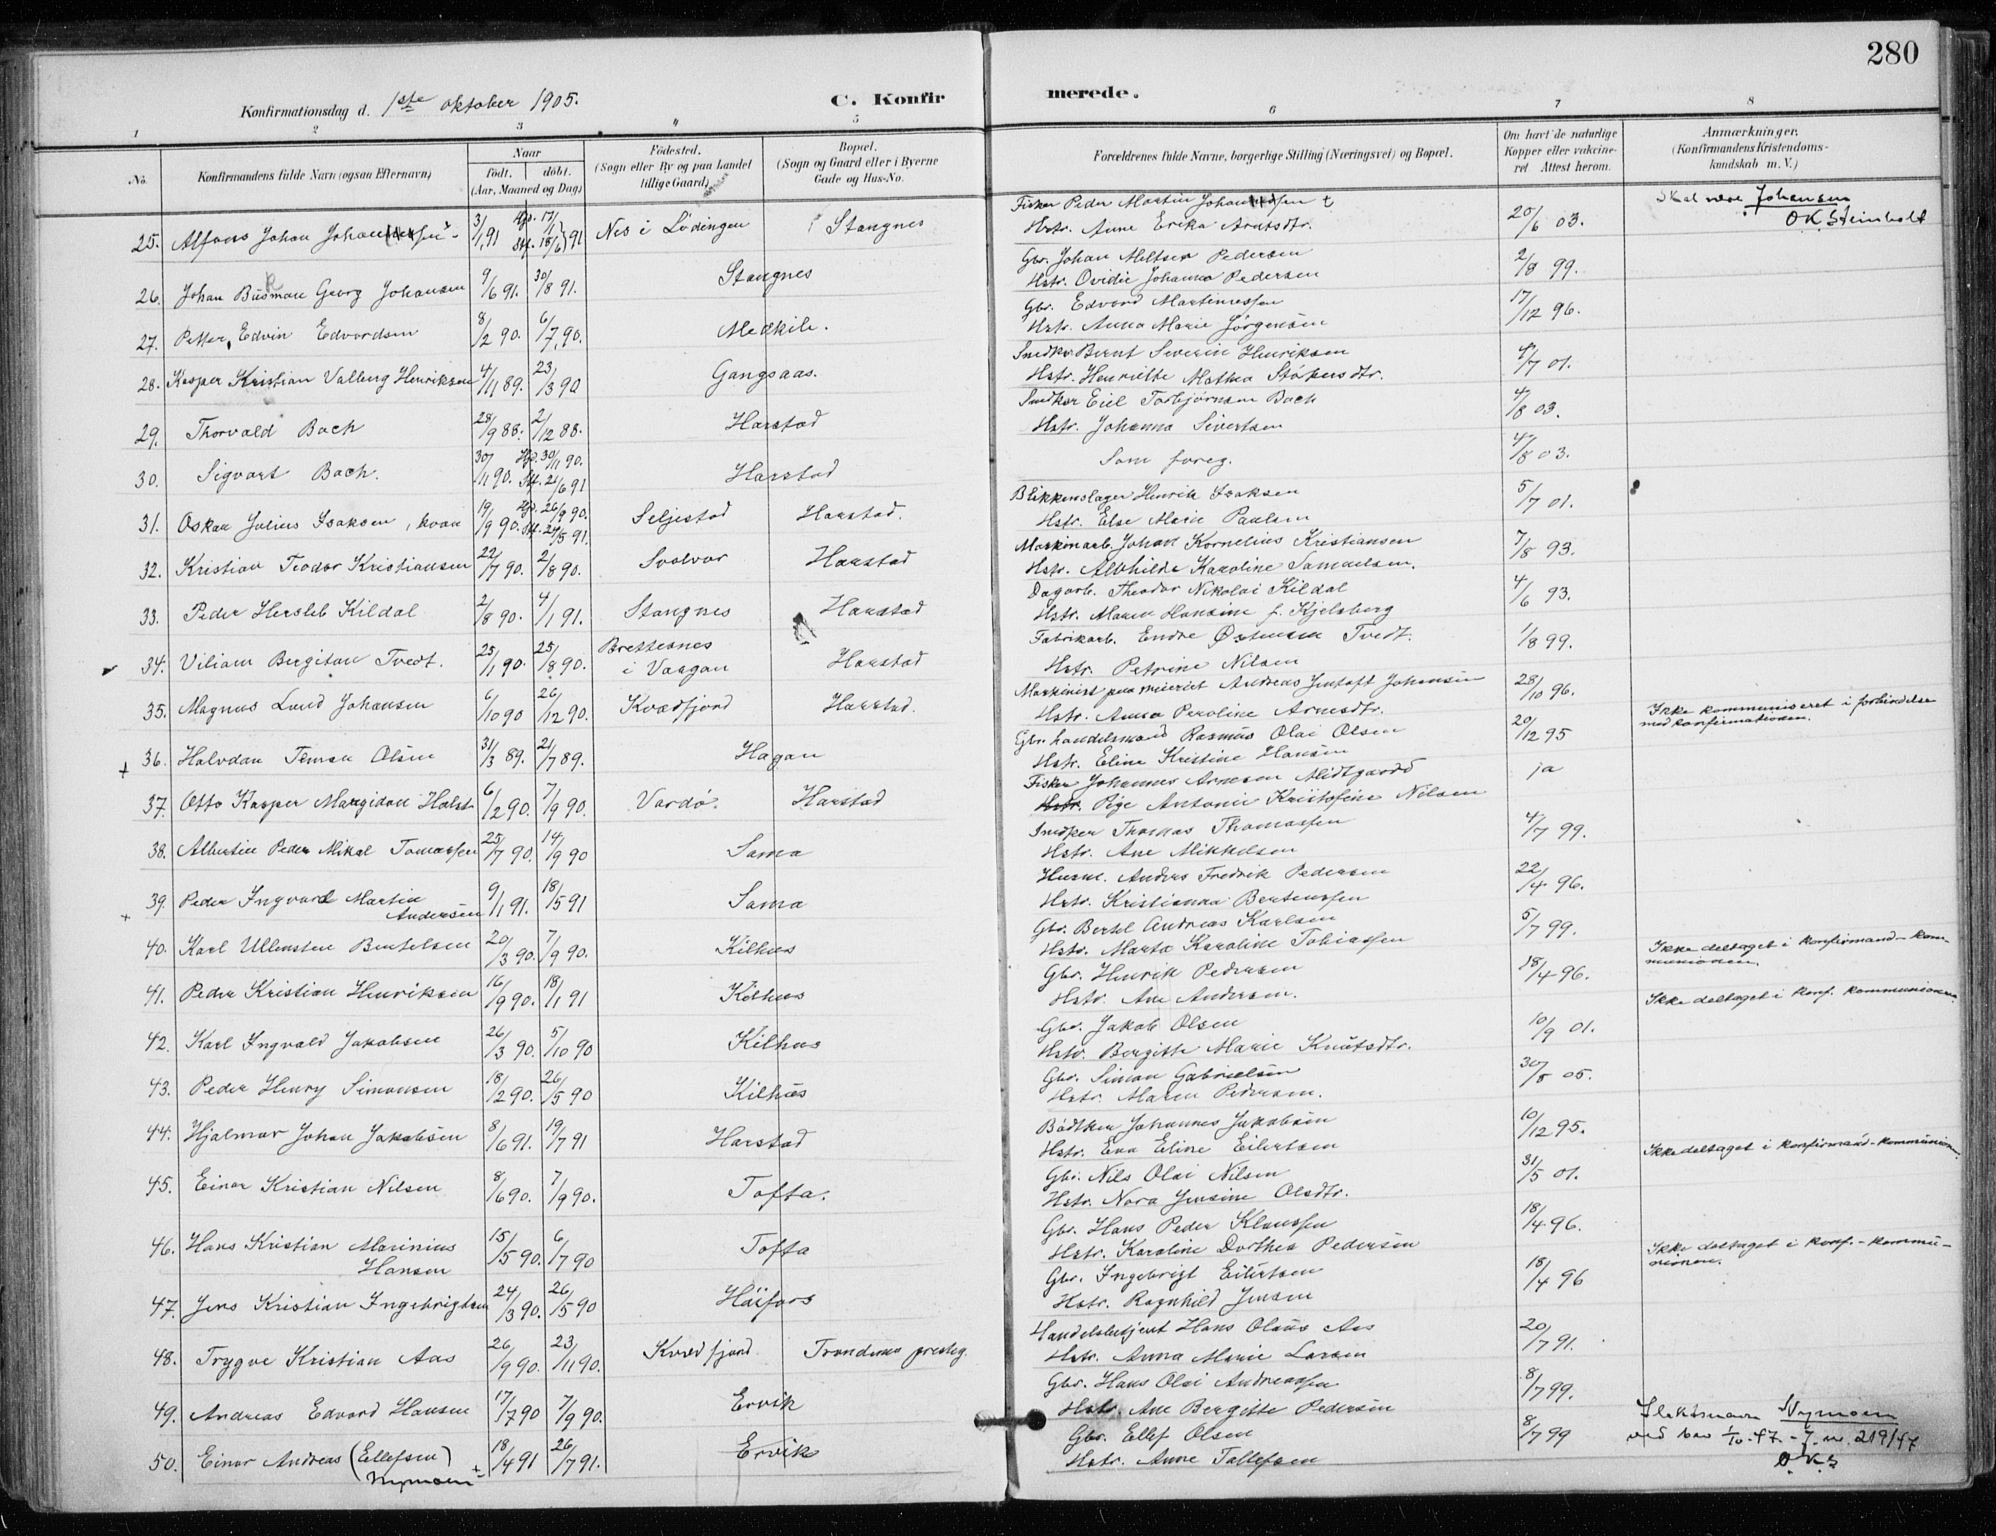 280
Konfirmationsdag d. 1ste oktober 1905.
C. Konfirmerede.
1 2 3 4 5 6 7 8
No.
Konfirmandens fulde Navn (ogsaa Efternavn)
Naar
født. døbt.
(Aar, Maaned og Dag)
Fødested.
(Sogn eller By og paa Landet
tillige Gaard)
Bopæl.
(Sogn og Gaard eller i Byerne
Gade og Hus-No.
Forældrenes fulde Navne, borgerlige Stilling (Næringsvei) og Bopæl.
Om havt de naturlige
Kopper eller vakcineret
Attest herom.
Anmærkninger.
(Konfirmandens Kristendomskundskab m. V.)
25. Alfons Johan 3/1 91 Hjd. 17/1 Stf. 18/6 } 91 Nes i Lødingen Stangnes Fisker Peder Martin
Hstr. Anne Erika Arntsdtr. 20/6 03. Skal være Johansen
O.K. Steinholt
26. Johan Georg Johansen 9/6 91. 30/8 91. Stangnes Gbr. Johan Meltser Pedersen
Hstr. Ovidie Johanna Pedersen 2/8 99.
27. Petter Edvin Edvardsen 8/2 90. 6/7 90. Medkile. Gbr. Edvard Martinussen
Hstr. Anna Marie Jørgensen 17/12 96.
28. Kasper Kristian Valberg Henriksen 4/11 89. 23/3 90 Gangsaas. Snedker Bernt Severin Henriksen
Hstr. Henriette Mathea 4/7 01.
29. Thorvald Bach 28/9 88. 2/12 88. Harstad Snedker Eiel Torbjørnsen Bach
Hstr. Johanna Sivertsen 4/8 03.
30. Sigvart Bach. 30/11 90. Hjd. 30/11 90. Stf. 21/6 91 Harstad Som foreg. 4/8 03.
31. Oskar Julius Isaksen, kvæn 19/9 90. Hjd. 26/9 90. Stf. 24/5 91. Seljestad Harstad. Blikkenslager Henrik Isaksen
Hstr. Else Marie Paulsen 5/7 01.
32. Kristian Teodor Kristiansen 22/7 90. 2/8 90. Svolvær Harstad Maskinarb. Johan Kornelius Kristiansen
Hstr. Alvhilde Karoline Samuelsen. 7/8 93.
33. Peder Hersleb Kildal 2/8 90. 4/1 91. Stangnes Harstad Dagarb. Theodor Nikolai Kildal
Hstr. Maren Hansine f. Kjelsberg 4/6 93.
34. Viliam Bergiton Tvedt. 25/1 90. 25/8 90. Brettesnes
i Vaagan Harstad Fabrikarb. Endre Østensen Tvedt.
Hstr. Petrine Nilsen 1/8 99.
35. Magnus Lund Johansen 6/10 90 26/12 90. Kvædfjord Harstad. Maskinist paa meieriet Andreas Johansen
Hstr. Anna Peroline Arnesdtr. 28/10 96. Ikke kommuniseret i forbindelse
med konfirmationen.
+ 36. Halvdan Teman Olsen 31/3 89. 21/7 89. Hagan Gbr. handelsmand Rasmus Olai Olsen
Hstr. Eline Kristine Hansen 20/12 95
37. Otto Kasper Margidon Holst 6/2 90. 7/9 90. Vardø. Harstad Fisker Johannes Arnesen Midtgaard
Hstr. Pige Antonie Kristofine Nilsen ja
38. Albertin Peder Mikal Tomassen 25/7 90. 14/9 90 Sama Snedker Thomas Thomassen
Hstr. Ane Mikkelsen 4/7 99.
+ 39. Peder Ingvard Martin
Andersen 9/1 91. 18/5 91 Sama Husm. Anders Fredrik Pedersen
Hstr. Kristianna Berteussen 22/4 96.
40. Karl Ullensten Bertelsen 20/3 90. 7/9 90. Kilhus Gbr. Bertel Andreas Karlsen
Hstr. Marta Karoline Tobiassen 5/7 99. Ikke deltaget i konfirmand-kommunionen.
41. Peder Kristian Henriksen 16/9 90. 18/1 91 Kilhus Gbr. Henrik Pedersen
Hstr. Ane Andersen. 18/4 96. Ikke deltaget i konf. kommunionen.
42. Karl Ingvald Jakobsen 26/3 90. 5/10 90 Kilhus Gbr. Jakob Olsen
Hstr. Bergitte Marie Knutsdtr. 10/9 01.
43. Peder Henry Simonsen 18/2 90. 26/5 90 Kilhus Gbr. Simon Gabrielsen
Hstr. Maren Pedersen. 30/8 05.
44. Hjalmar Johan Jakobsen 8/6 91. 19/7 91 Harstad Bødker Johannes Jakobsen
Hstr. Eva Eline Eilertsen 10/12 95.
45. Einar Kristian Nilsen 8/6 90. 7/9 90. Tofta. Gbr. Nils Olai Nilsen
Hstr. Nora Jensine Olsdtr. 31/5 01. Ikke deltaget i konfirmand-kommunion.
46. Hans Kristian Marinius
Hansen 15/5 90. 6/7 90 Tofta Gbr. Hans Peder Klaussen
Hstr. Karoline Dorthea Pedersen 18/4 96.
47. Jens Kristian Ingebrigtsen 24/3 90. 26/5 90 Høifors Gbr. Ingebrigt Eilertsen
Hstr. Ragnhild Jensen 18/4 96 Ikke deltaget i konf.-kommunionen.
48. Trygve Kristian Aas 26/9 90. 23/11 90. Kvædfjord Trondenæs presteg. Handelsbetjent Hans Olaus Aas
Hstr. Anna Marie Larsen 20/7 91.
49. Andreas Edvard Hansen 17/7 90 7/9 90. Ervik Gbr. Hans Olai Andreassen
Hstr. Ane Bergitte Pedersen 8/7 99.
50. Einar Andreas (Ellefsen)
Nymoen + 18/4 91 26/7 91. Ervik Gbr. Ellef Olsen
Hstr. Anne Tollefsen 8/7 99 Slektsnavn Nymoen
ved bev 1/10-47.-J.nr. 219/47
O.K.S